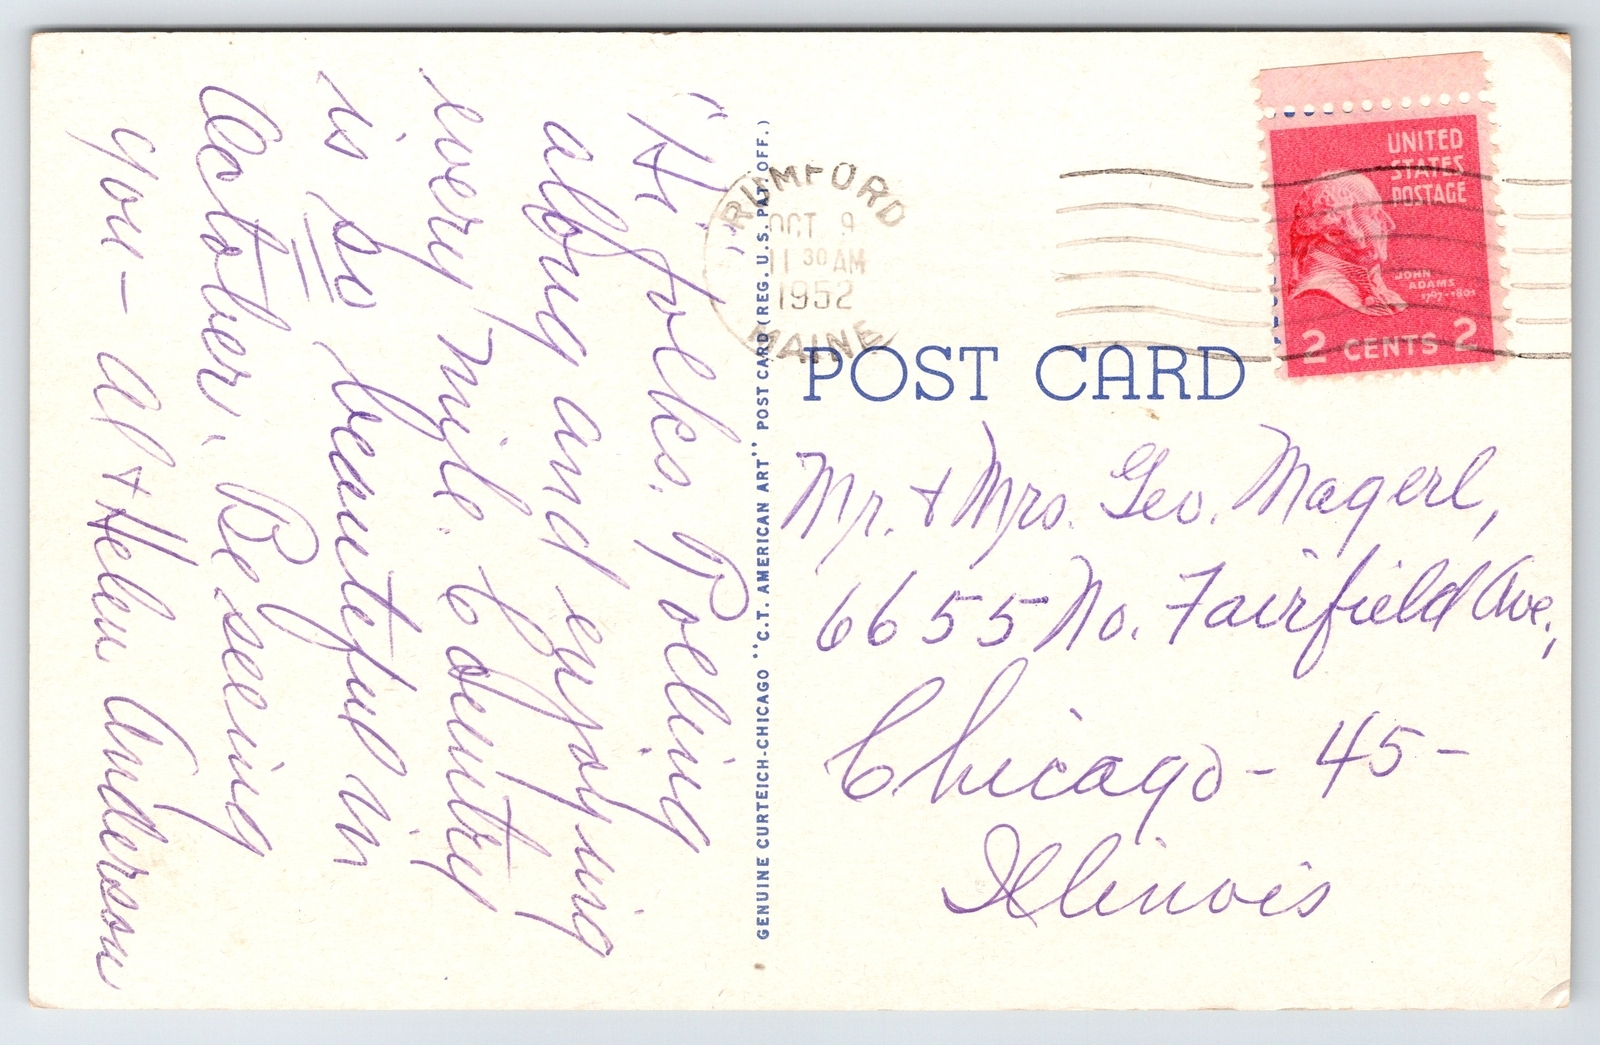 "Hi" folks. Rolling
along and enjoying
every mile. Country
is so beauteful in
October. Be seeing
you - Al + Helen Anderson
GENUINE CURTEICH-CHICAGO "C.T. AMERICAN ART" POST CARD (REG. U.S. PAT. OFF.)
RUMFORD
OCT 9
11 30 AM
1952
MAINE
UNITED
STATES
POSTAGE
JOHN
ADAMS
1797-1801
2 CENTS 2
POST CARD
Mr. + Mrs. Geo. Magerl,
6655 No. Fairfield Ave.,
Chicago - 45 -
Illinois